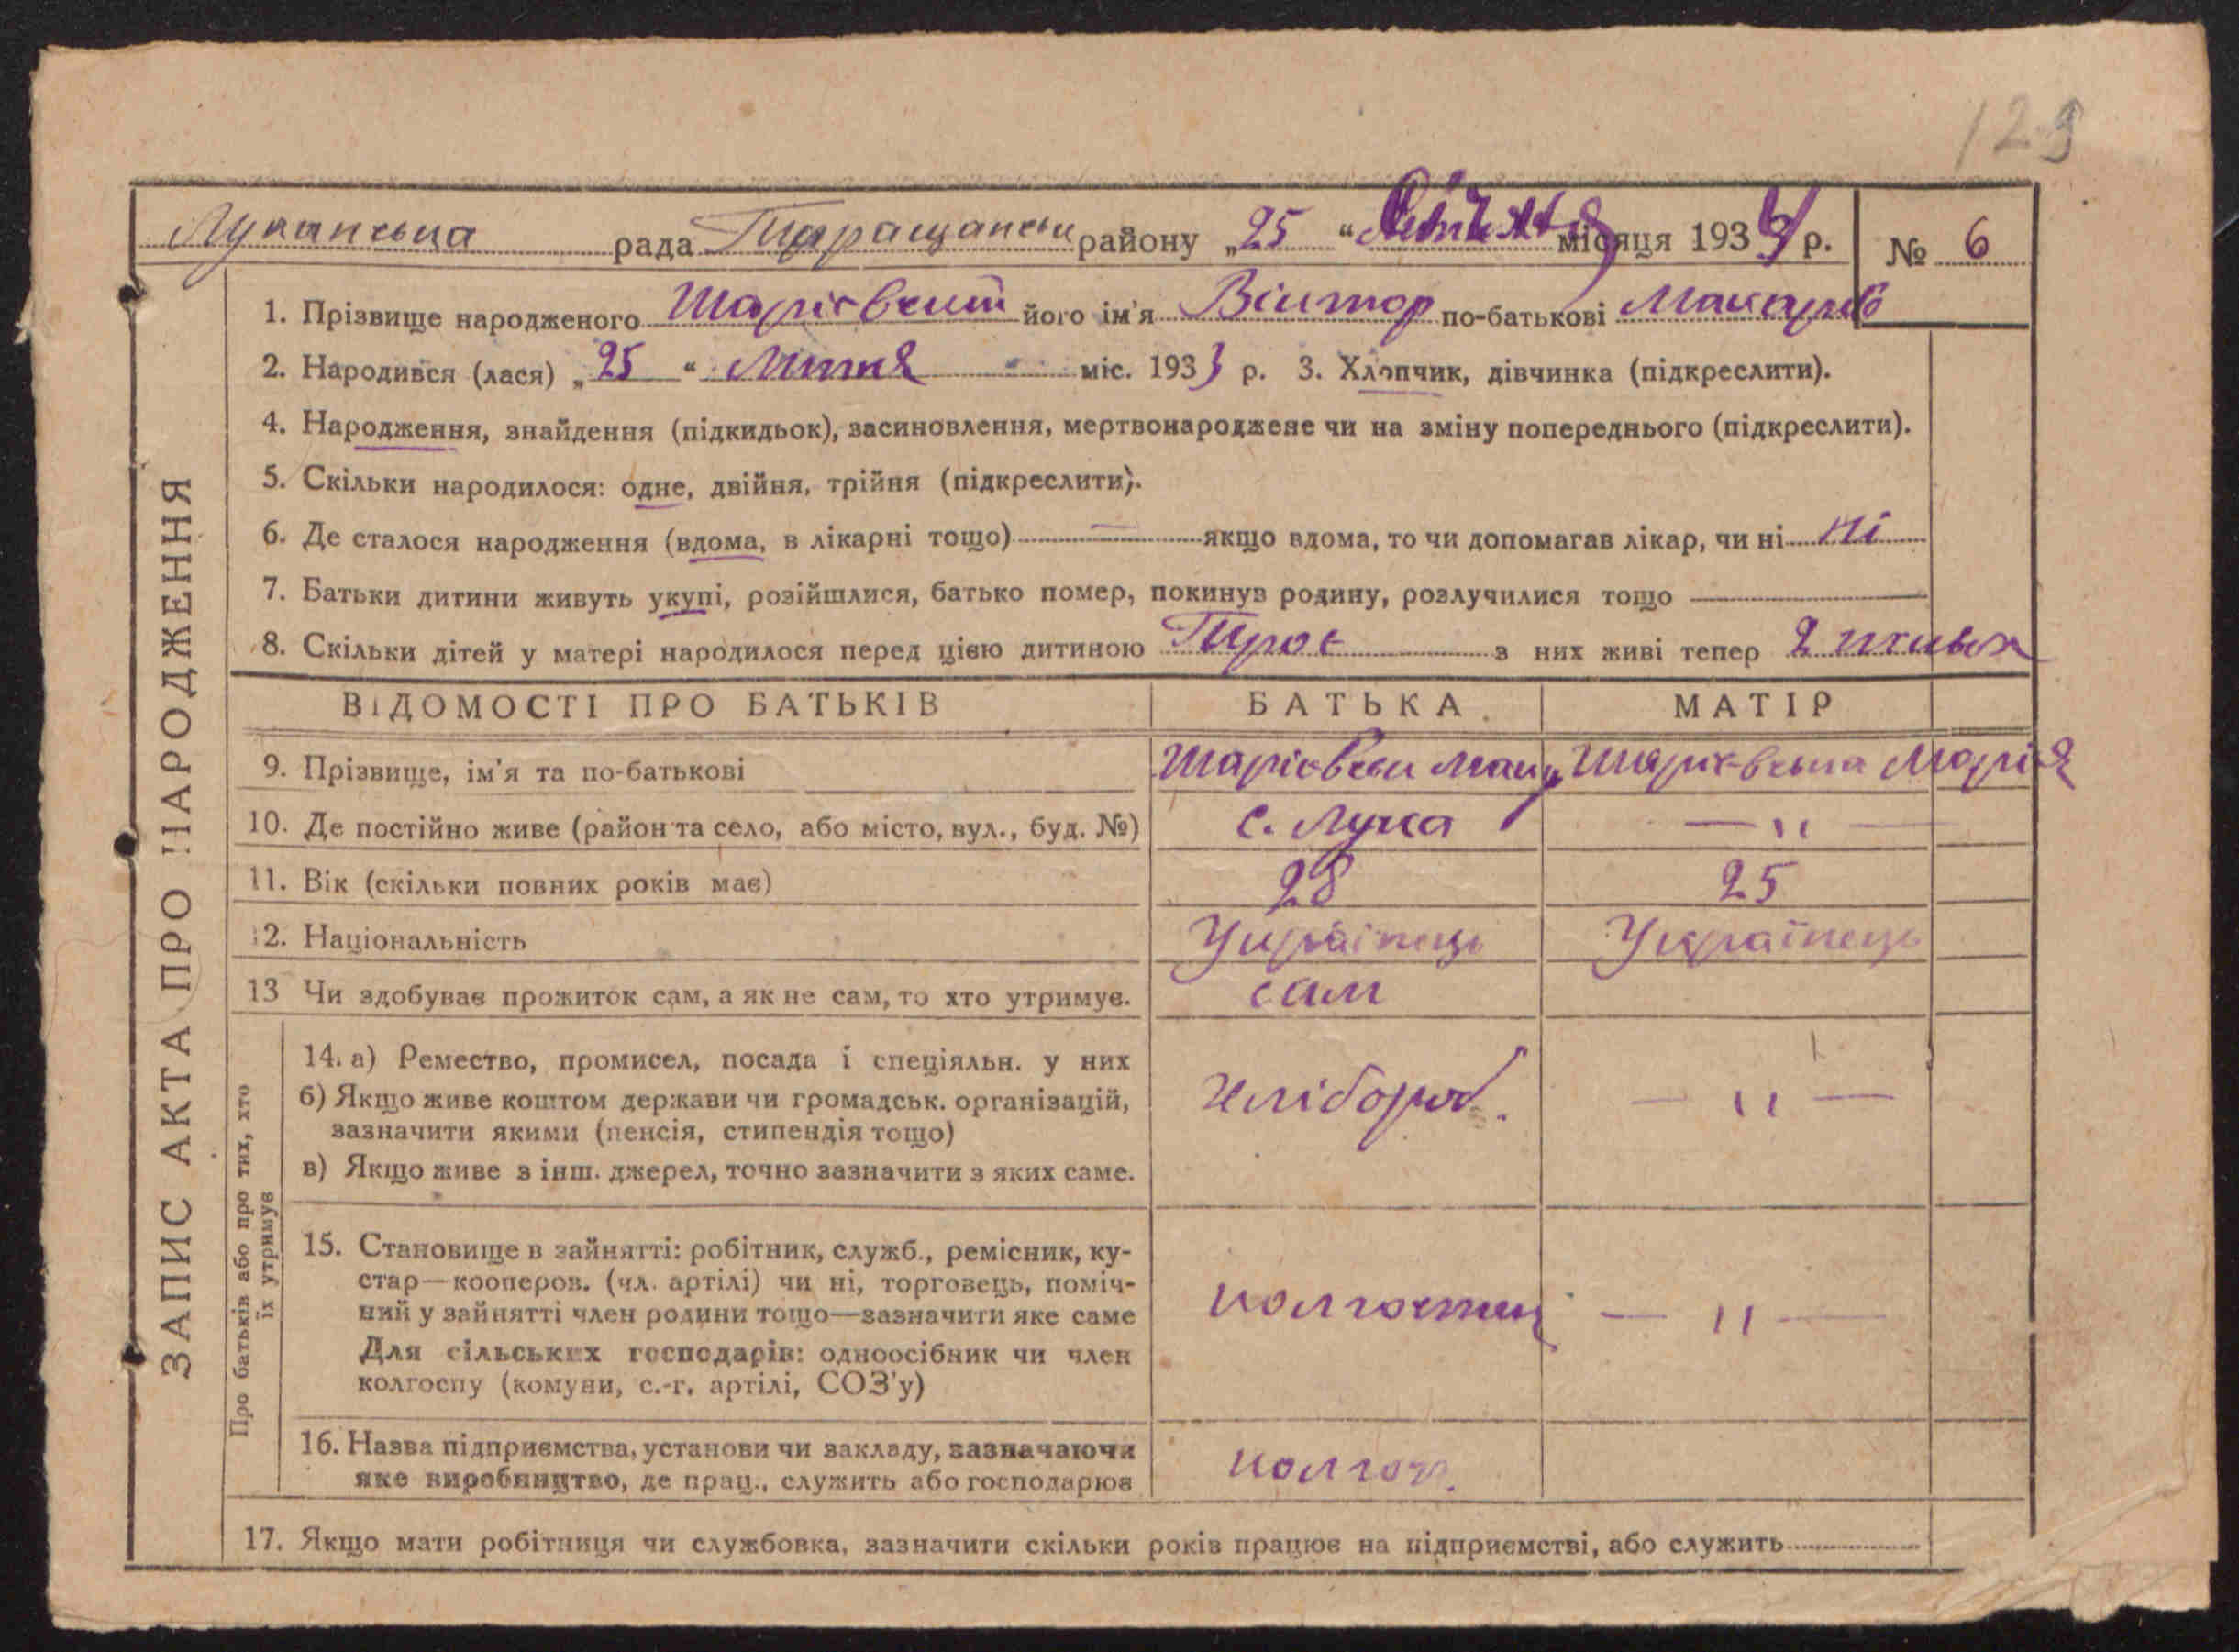 129
Луканська рада Таращанськ району „25“ місяця 1934 р. № 6
1. Прізвище народженого Шарієвский його ім'я Віктор по-батькові Макарів
2. Народився (лася) „25“ Липня міс. 1933 р. 3. Хлопчик, дівчинка (підкреслити).
4. Народження, знайдення (підкидьок), засиновлення, мертвонароджене чи на зміну попереднього (підкреслити).
5. Скільки народилося: одне, двійня, трійня (підкреслити).
6. Де сталося народження (вдома, в лікарні тощо) — якщо вдома, то чи допомагав лікар, чи ні ні
7. Батьки дитини живуть укупі, розійшлися, батько помер, покинув родину, розлучилися тощо
8. Скільки дітей у матері народилося перед цією дитиною Троє з них живі тепер 2 живих
ВІДОМОСТІ ПРО БАТЬКІВ БАТЬКА МАТІР
9. Прізвище, ім'я та по-батькові Шарієвськ Макар Шарієвська Марія
10. Де постійно живе (район та село, або місто, вул., буд. №) с. Лука — " —
11. Вік (скільки повних років має) 28 25
12. Національність Українець Українець
13 Чи здобуває прожиток сам, а як не сам, то хто утримує. сам
14. а) Ремество, промисел, посада і спеціяльн. у них
б) Якщо живе коштом держави чи громадськ. організацій, хлібороб. — " —
зазначити якими (пенсія, стипендія тощо)
в) Якщо живе з інш. джерел, точно зазначити з яких саме.
15. Становище в зайнятті: робітник, служб., ремісник, ку-
стар—кооперов. (чл. артілі) чи ні, торговець, поміч-
ний у зайнятті член родини тощо—зазначити яке саме колгоспник — " —
Для сільських господарів: одноосібник чи член
колгоспу (комуни, с.-г. артілі, СОЗ'у)
16. Назва підприємства, установи чи закладу, зазначаючи
яке виробництво, де прац., служить або господарює колгосп.
17. Якщо мати робітниця чи службовка, зазначити скільки років працює на підприємстві, або служить
ЗАПИС АКТА ПРО НАРОДЖЕННЯ
Про батьків або про тих, хто
їх утримує